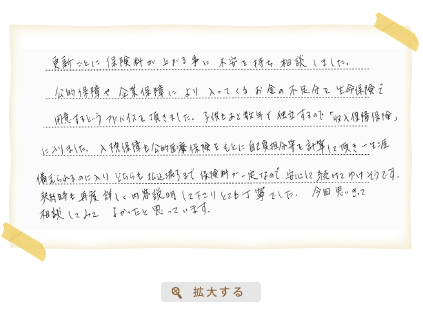 更新ごとに保険料が上がる事に不安を持ち相談しました。
公的保障や企業保障により入ってくるお金の不足分を生命保険で
用意するというアドバイスを頂きました。子供もあと数年で独立するので「収入保障保険」
に入りました。入院保障も公的医療保険をもとに自己負担分等を計算して頂き一生涯
備えられるのに入りどちらも払込満了まで保険料が一定なので安心して続けてゆけそうです。
契約時も再度詳しく内容説明して下さりとても丁寧でした。今回思いきって
相談してみてよかったと思っています。
拡大する